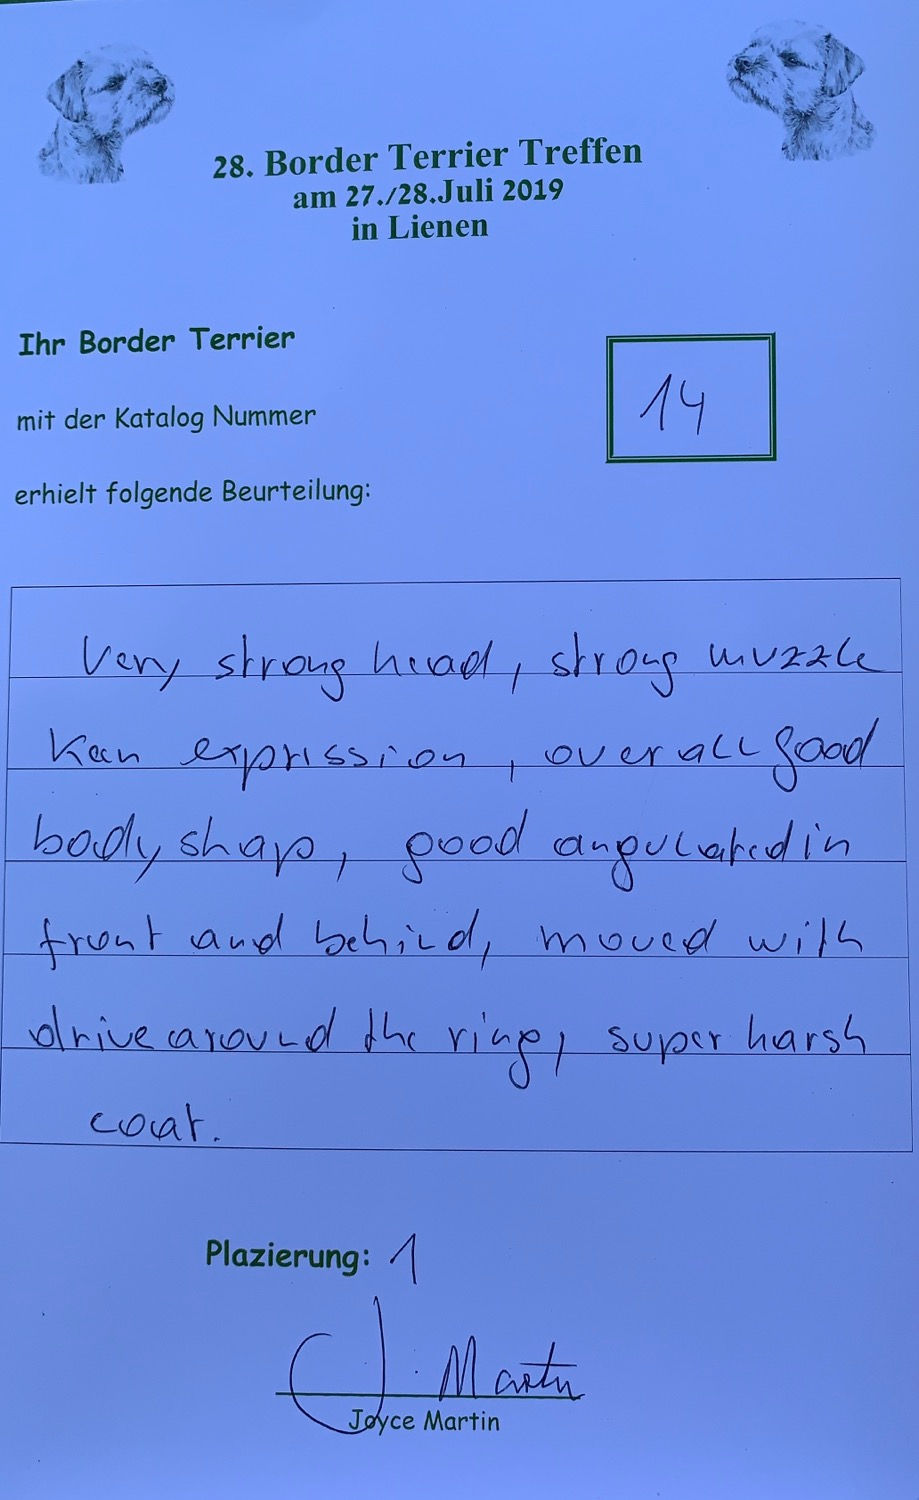 28. Border Terrier Treffen
am 27./28.Juli 2019
in Lienen
Ihr Border Terrier
mit der Katalog Nummer
14
erhielt folgende Beurteilung:
Very strong head, strong muzzle
keen expression, overall good
body shap, good angulated in
front and behind, moved with
drive around the ring, super harsh
coat.
Plazierung: 1
J. Martin
Joyce Martin